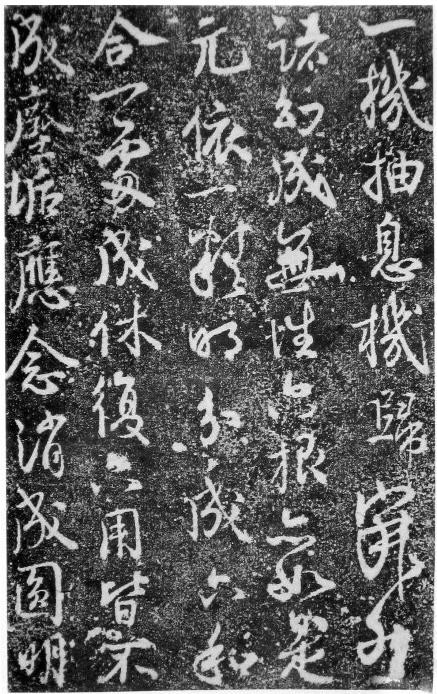 一機抽息機歸寂然
諸幻成無性六根亦如是
元依一精明分成六和
合一處成休復六用皆不
成塵垢應念消成圓明